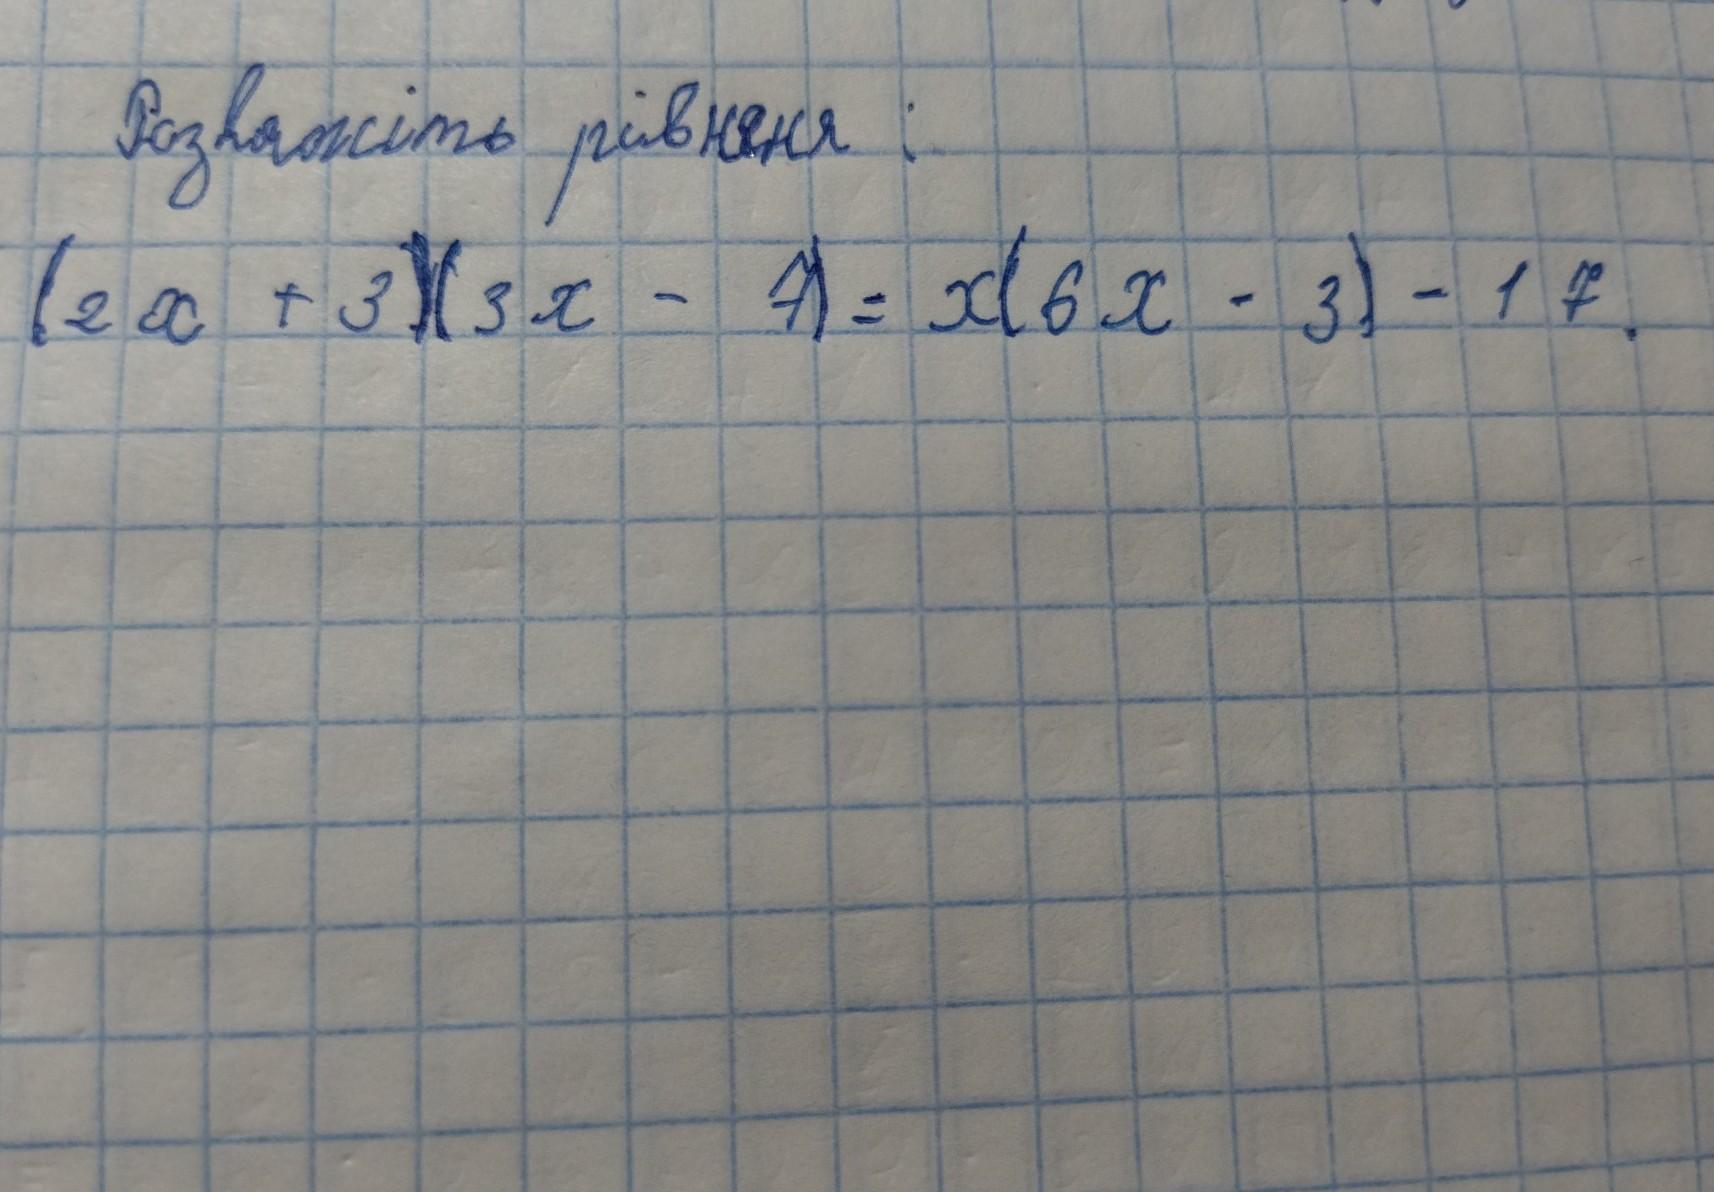 Розвяжіть рівняня :
(2x + 3)(3x - 7) = x(6x - 3) - 17.